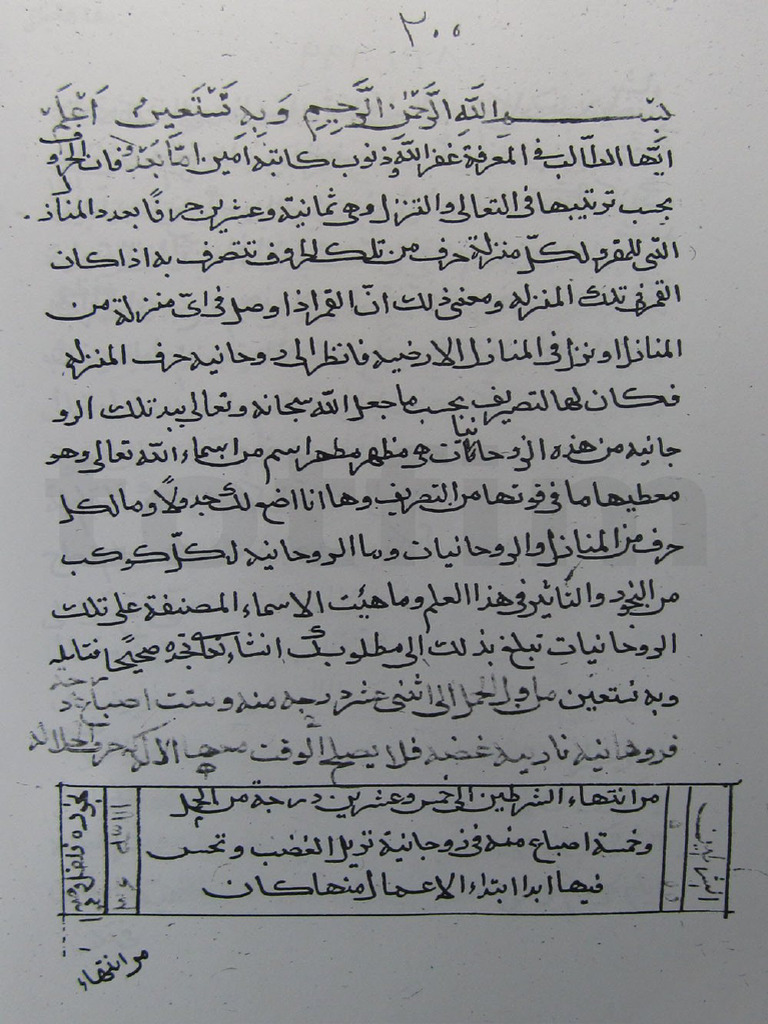 ٣٠٠
بسم الله الرَّحمٰن الرَّحِيمِ وَبِهِ نَسْتَعِينُ اَعْلَمْ
ايّها الطّالب في المعرفة غفر الله ذنوب كاتبه امين امّا بَعْدُ فان الحرو ف
يجب ترتيبها في التعالى والتنزل وهى ثمانية وعشرين حرفًا بعدد المناذ ل
التى للقمر ولكلّ منزلة حرف من تلك الحروف تتصرف به اذا كان
القمر في تلك المنزله ومعنى ذلك انّ القمر اذا وصل في اىّ منزلة من
المناذل او نزل في المناذل الارضيه فانظر الى روحانيه حرف المنزله
فكان لها التصريف بحسب ما جعل الله سبحانه وتعالى بيد تلك الرو
حانيه من هذه الروحانيات هي مظهر مطهر اسم من اسماء الله تعالى وهو
معطيها ما في قوتها من التصريف وها انا اضع لك جدولًا وما لكل
حرف من المناذل والروحانيات وما الروحانيه لكلّ كوكب
من البخور والتأثير في هذا العلم وما هيئت الاسماء المصنفة على تلك
الروحانيات تبلغ بذلك الى مطلوبك انشاء تعا تجده صحيحًا
وبه نستعين من اول الحمل الى اثنى عشر درجه منه وستت اصباع
فروحانيه ناريه غضبه فلا يصلح الوقت
من انتهاء الشرطين الى خمس وعشرين درجة من الحمل
وخمسة اصباع منه في روحانية تزيل الغضب وتحسن
فيها ابدا ابتداء الاعمال منها كان
بخوره
من انتهاء